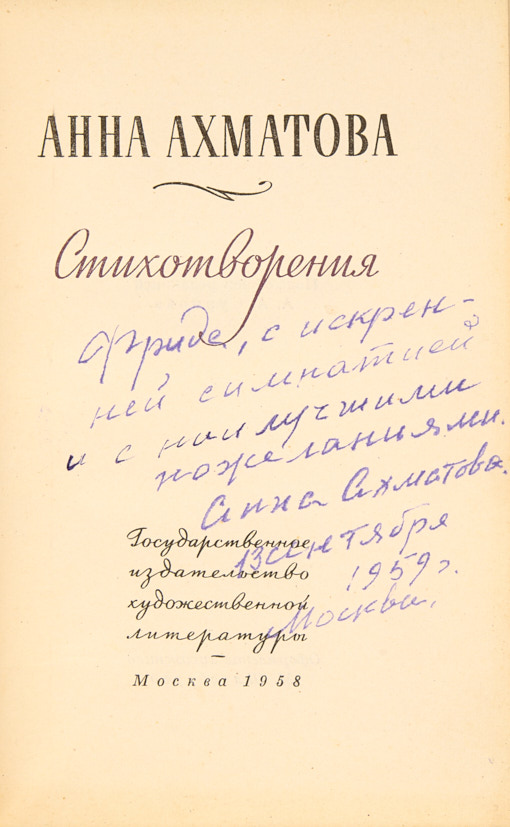 АННА АХМАТОВА
Стихотворения
Фриде, с искрен-
ней симпатией
и с наилучшими
пожеланиями.
Анна Ахматова.
13 сентября
1959 г.
Москва.
Государственное
издательство
художественной
литературы
Москва 1958